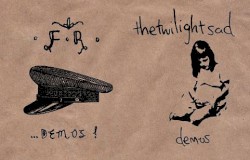 ·F·R·
...DEMOS!
thetwilightsad
demos